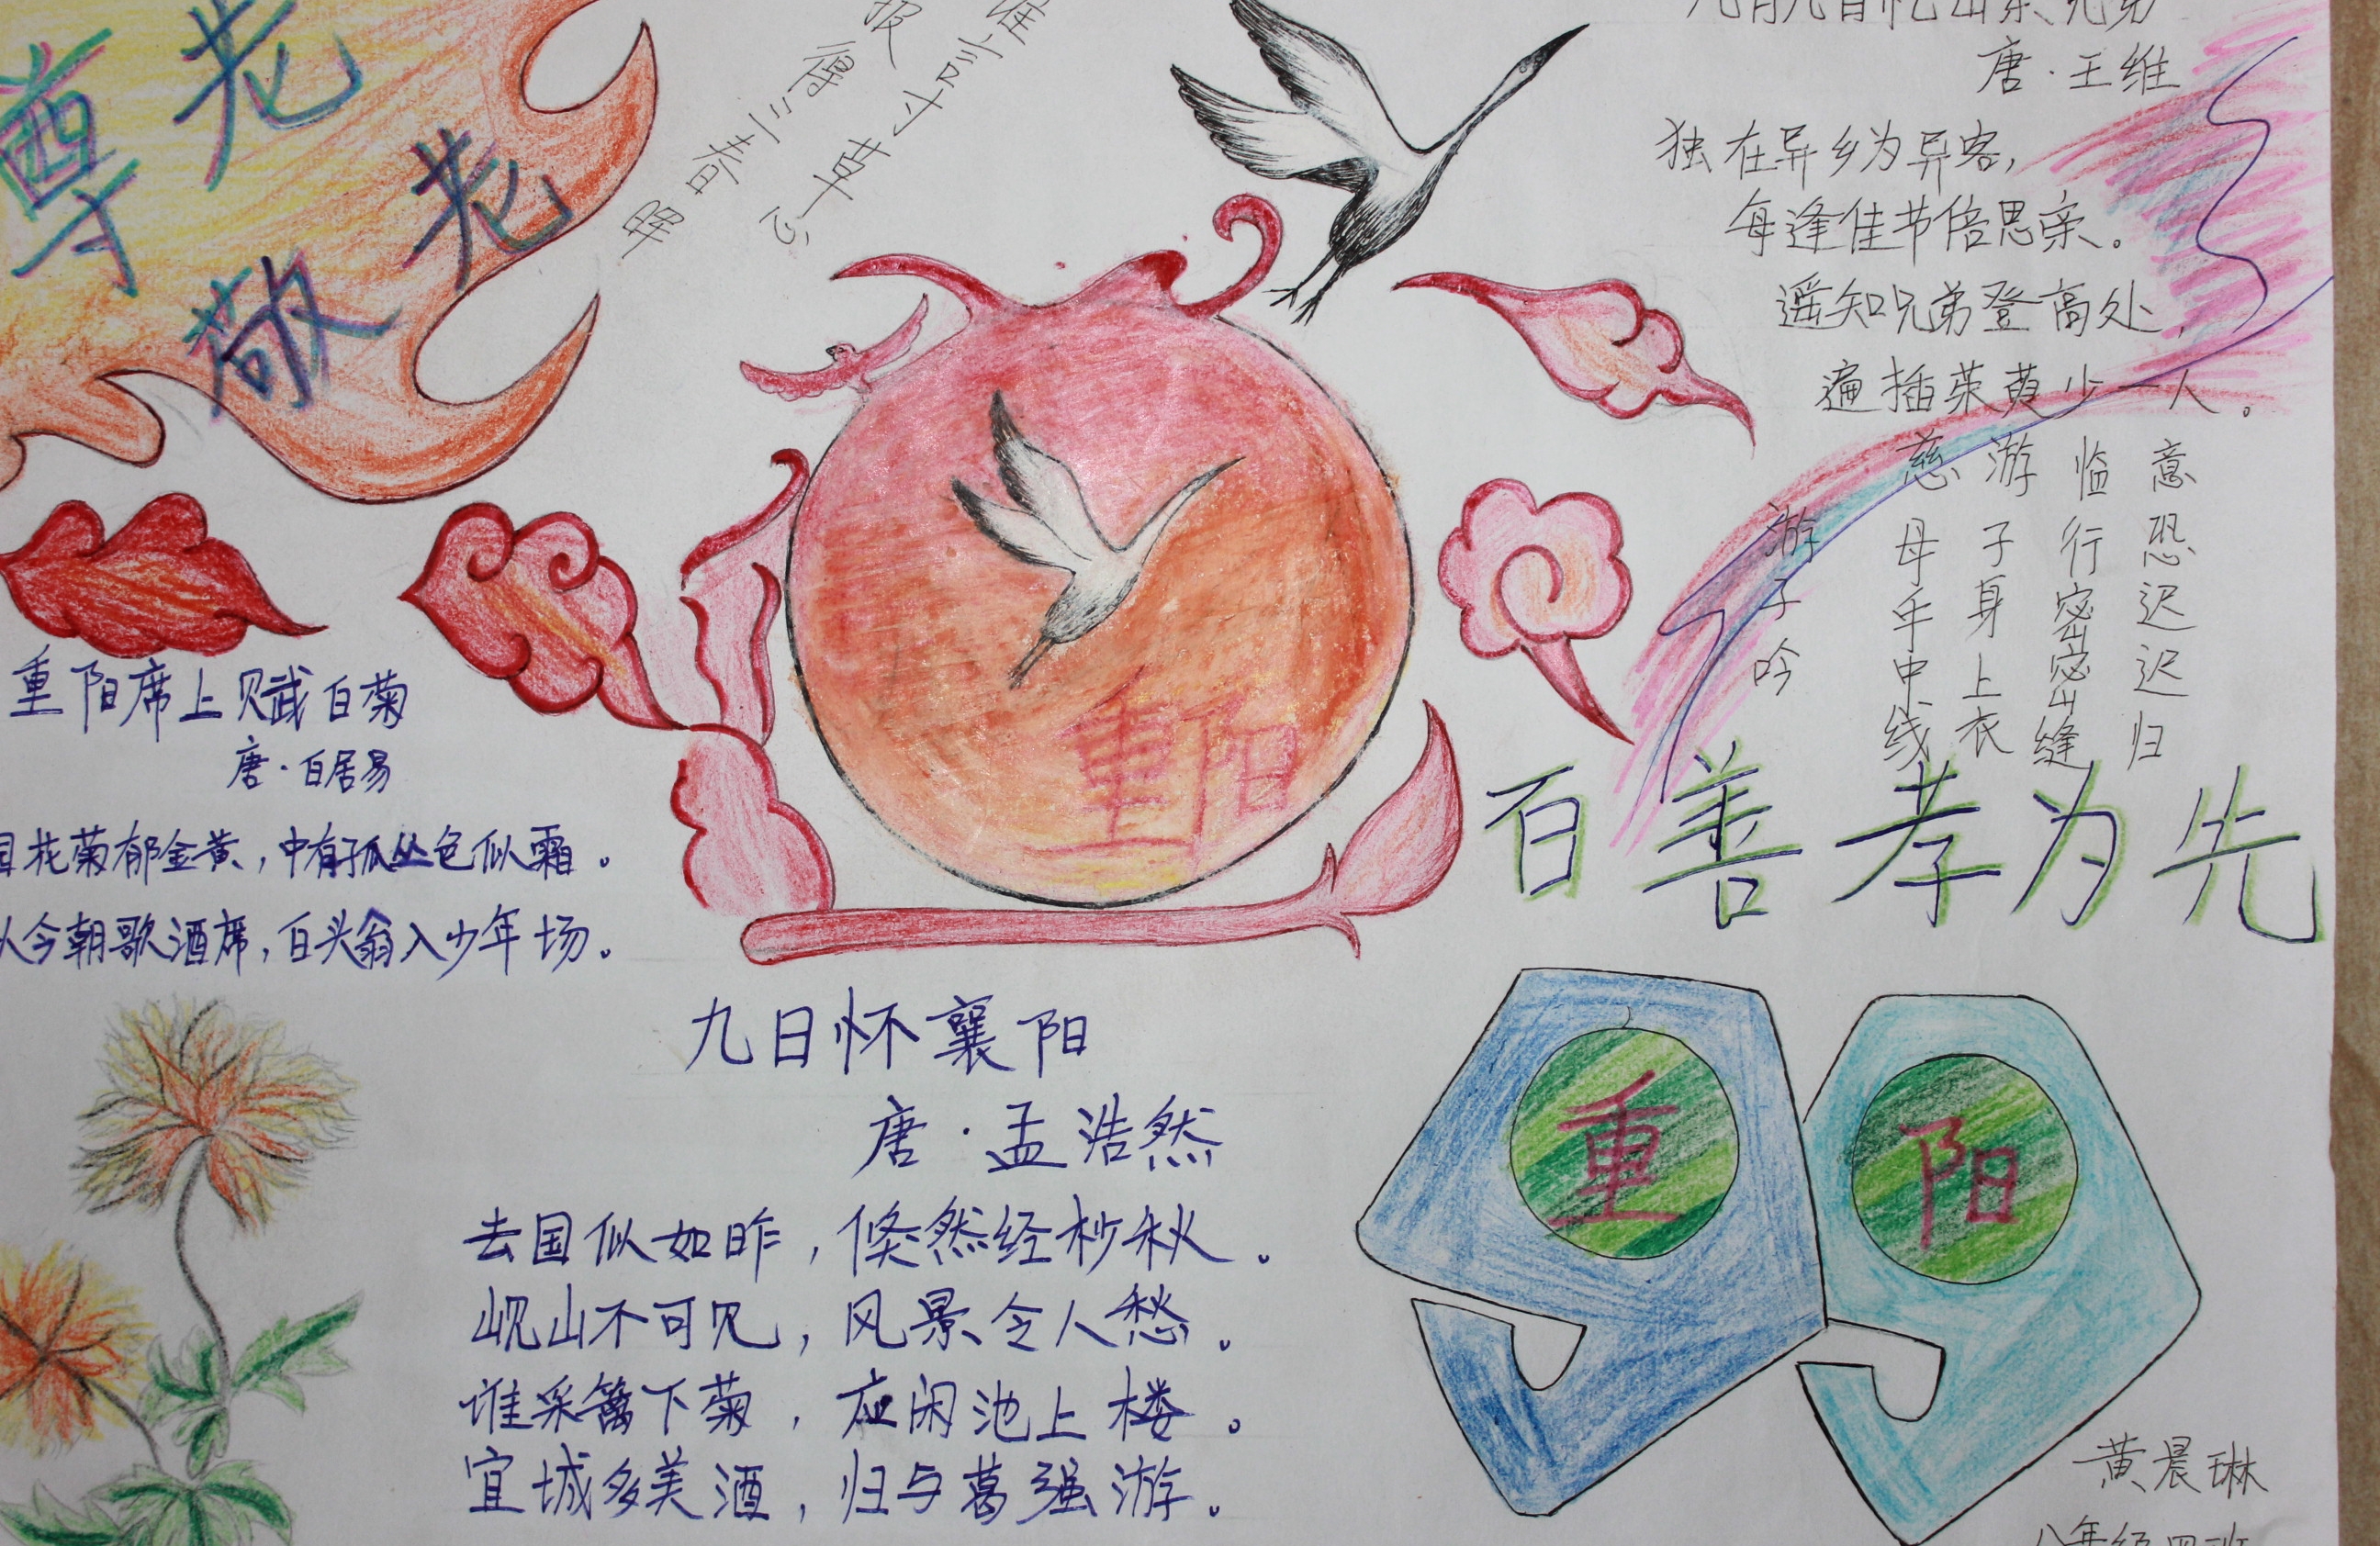 尊老
敬老
谁言寸草心
报得三春晖
九月九日忆山东兄弟
唐·王维
独在异乡为异客，
每逢佳节倍思亲。
遥知兄弟登高处，
遍插茱萸少一人。
游子吟
慈母手中线
游子身上衣
临行密密缝
意恐迟迟归
百善孝为先
重阳
重阳席上赋白菊
唐·白居易
园花菊郁金黄，中有孤丛色似霜。
从今朝歌酒席，白头翁入少年场。
九日怀襄阳
唐·孟浩然
去国似如昨，倏然经杪秋。
岘山不可见，风景令人愁。
谁采篱下菊，应闲池上楼。
宜城多美酒，归与葛强游。
重阳
黄晨琳
八年级四班